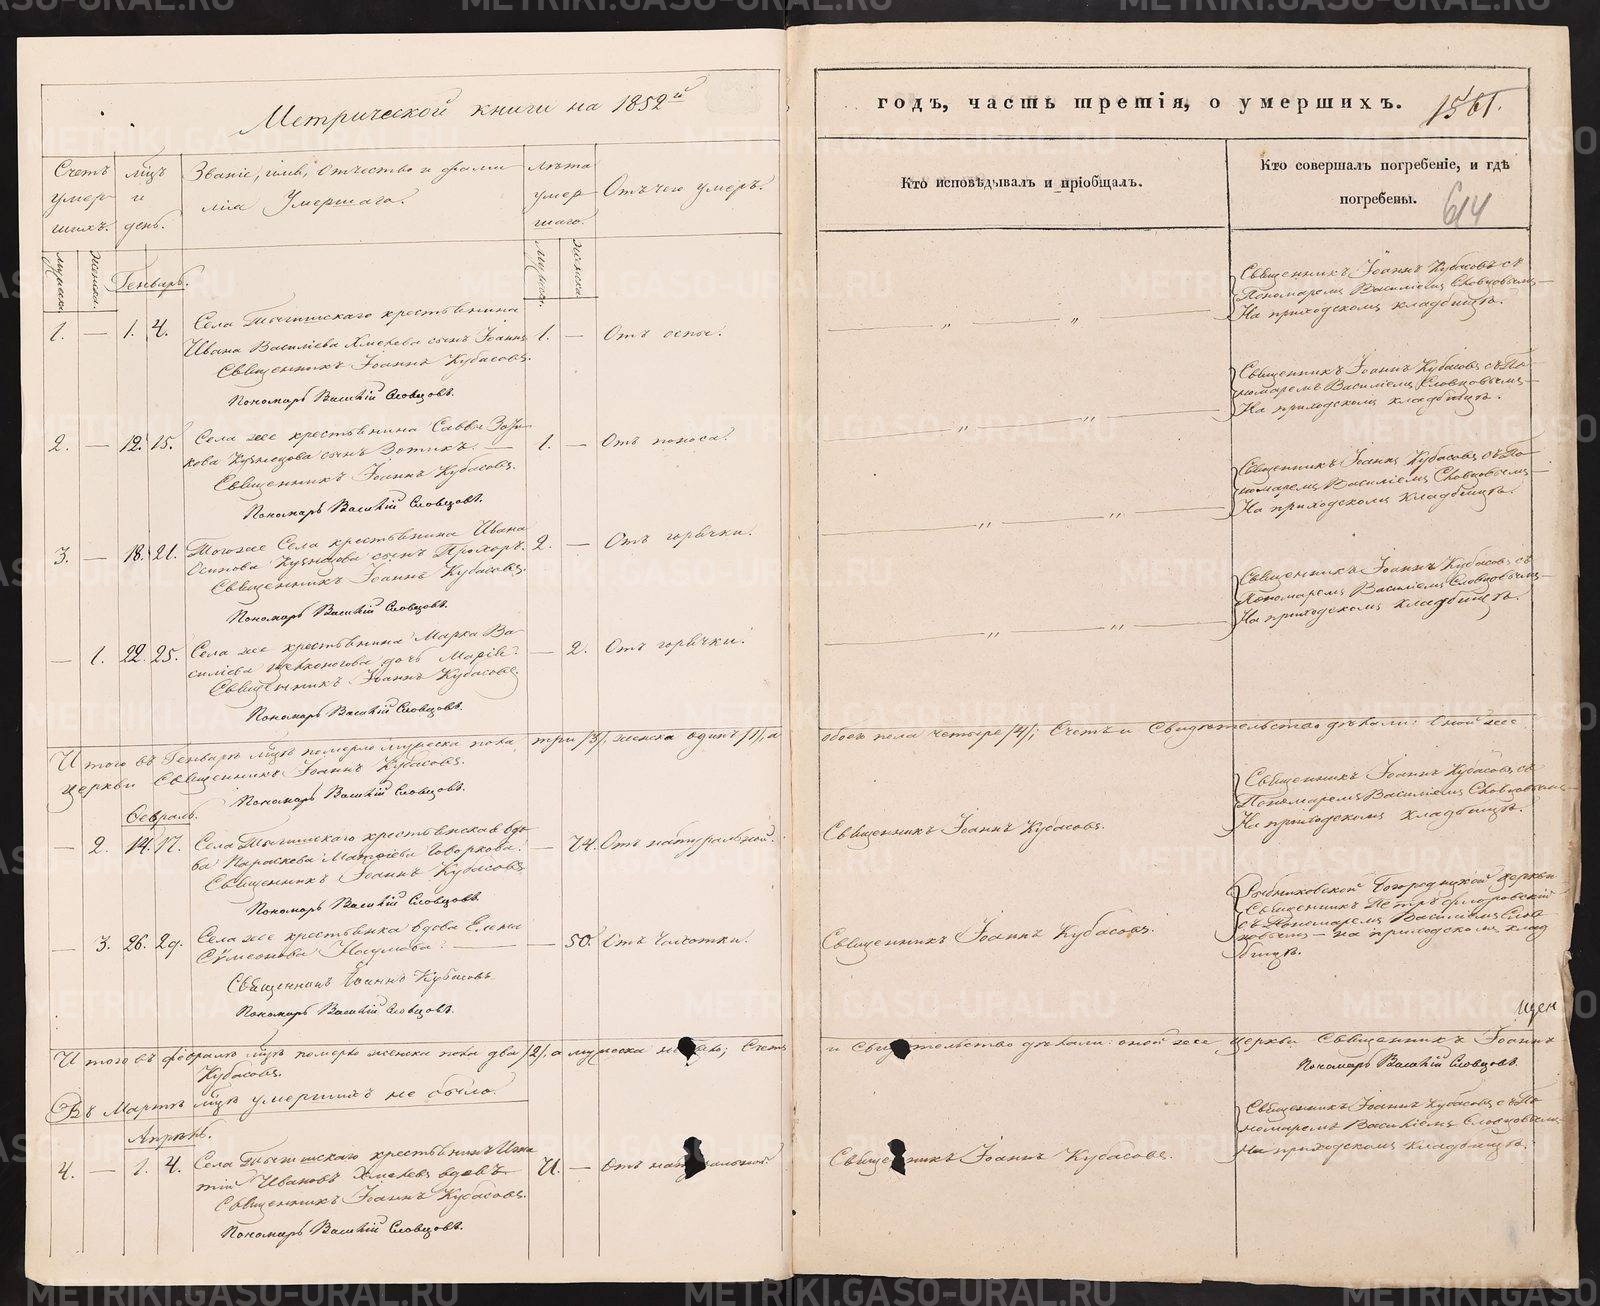 Метрической книги на 1852й
Счетъ умер шихъ.
мцъ и день.
Званіе, имя, отчество и фами
лія Умершаго.
лѣта умер шаго.
Отъ чего умеръ.
мужска. женска.
мужска. женска
Генварь.
1. — 1. 4. Села Тыгишскаго крестьянина
Ивана Василіева Хмелева сынъ Іоаннъ 1. — Отъ оспы.
Священникъ Іоаннъ Кубасовъ.
Пономарь Василій Словцовъ.
2. — 12. 15. Села же крестьянина Саввы
Кузнецова сынъ Зотикъ. — 1. — Отъ поноса.
Священникъ Іоаннъ Кубасовъ.
Пономарь Василій Словцовъ.
3. — 18. 21. Тогоже Села крестьянина Ивана
Осипова Кузнецова сынъ Прохоръ. 2. — Отъ горячки.
Священникъ Іоаннъ Кубасовъ.
Пономарь Василій Словцовъ.
— 1. 22. 25. Села же крестьянина Марка Ва
силіева дочь Марія. — 2. Отъ горячки.
Священникъ Іоаннъ Кубасовъ.
Пономарь Василій Словцовъ.
Итого въ Генварѣ мцѣ померло мужска пола три /3/, женска одинъ /1/, а
церкви Священникъ Іоаннъ Кубасовъ.
Пономарь Василій Словцовъ.
Февраль.
— 2. 14. 17. Села Тыгишскаго крестьянская вдо
ва Параскева Матфіева Говоркова. — 74. Отъ натуральной.
Священникъ Іоаннъ Кубасовъ
Пономарь Василій Словцовъ
— 3. 26. 29. Села же крестьянка вдова Елена
Симеонова Наумова. — 50. Отъ чахотки.
Священникъ Іоаннъ Кубасовъ
Пономарь Василій Словцовъ.
Итого въ февралѣ мцѣ померло женска пола два /2/, а мужска Счетъ
Кубасовъ.
Въ Мартѣ мцѣ умершихъ не было.
Апрѣль.
4. — 1. 4. Села Тыгишскаго крестьянинъ Игна
тій Ивановъ Хмелевъ вдовъ — Отъ натуральной.
Священникъ Іоаннъ Кубасовъ.
Пономарь Василій Словцовъ.
годъ, часть третія, о умершихъ.
Кто исповѣдывалъ и пріобщалъ.
Кто совершалъ погребеніе, и гдѣ
погребены.
614
Священникъ Іоаннъ Кубасовъ съ
Пономаремъ Василіемъ Словцовымъ —
На приходскомъ кладбищѣ.
Священникъ Іоаннъ Кубасовъ съ По
номаремъ Василіемъ Словцовымъ —
На приходскомъ кладбищѣ.
Священникъ Іоаннъ Кубасовъ съ По
номаремъ Василіемъ Словцовымъ —
На приходскомъ кладбищѣ.
Священникъ Іоаннъ Кубасовъ съ
Пономаремъ Василіемъ Словцовымъ —
На приходскомъ кладбищѣ.
обоего пола четыре /4/; Счетъ и Свидѣтельство дѣлали: оной же
Священникъ Іоаннъ Кубасовъ съ
Пономаремъ Василіемъ Словцовымъ —
На приходскомъ кладбищѣ.
Священникъ Іоаннъ Кубасовъ.
Рыбниковской Богородицкой церкви
Священникъ Петръ Флоровскій
съ Пономаремъ Василіемъ Слов
цовымъ — на приходскомъ клад
бищѣ.
Священникъ Іоаннъ Кубасовъ.
и Свидѣтельство дѣлали: оной же церкви Священникъ Іоаннъ
Пономарь Василій Словцовъ.
Священникъ Іоаннъ Кубасовъ съ По
номаремъ Василіемъ Словцовымъ
На приходскомъ кладбищѣ.
Священникъ Іоаннъ Кубасовъ.
METRIKI.GASO-URAL.RU